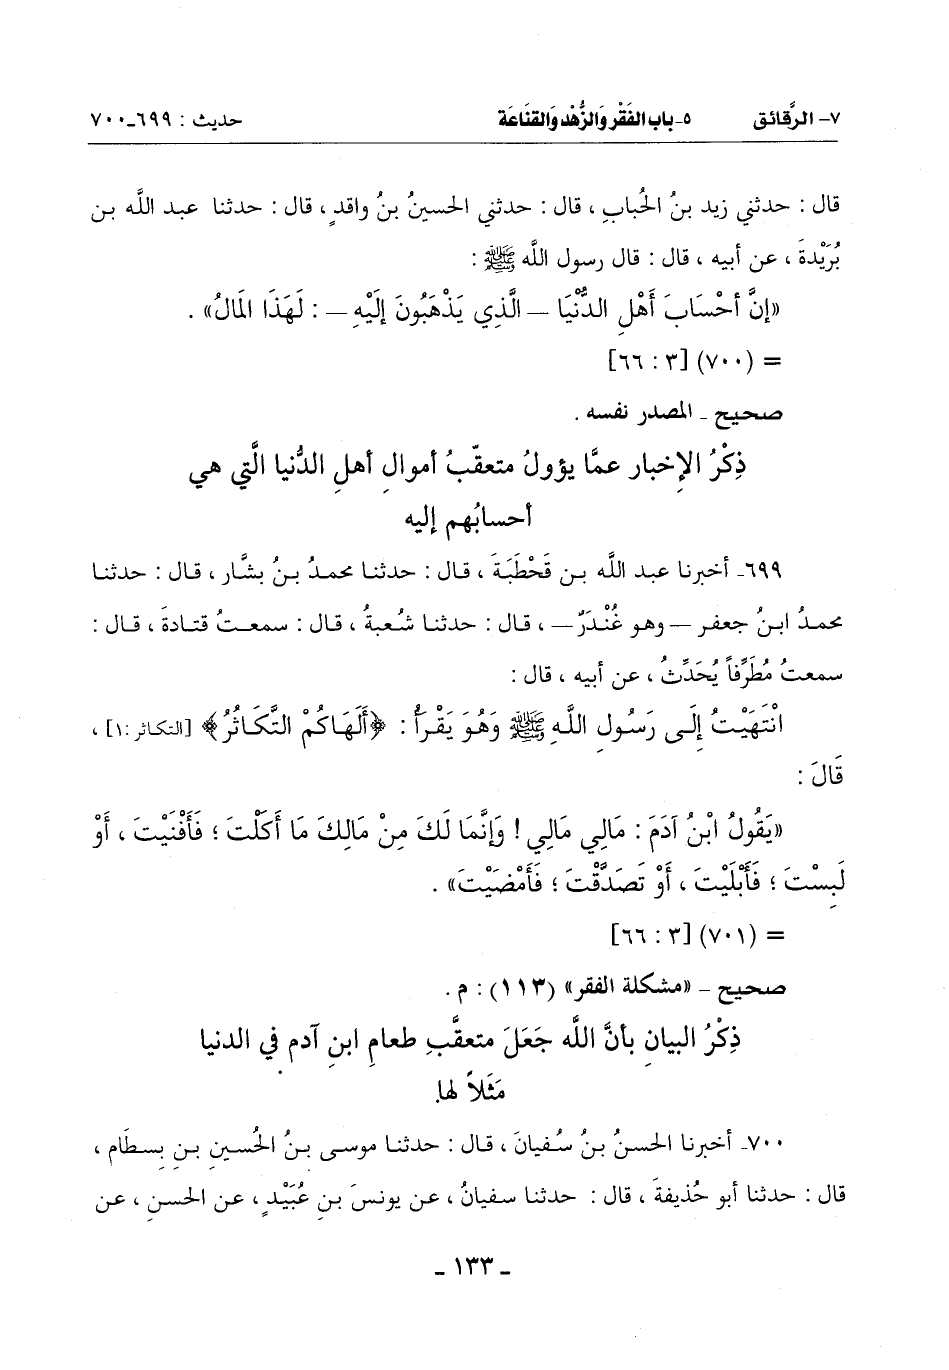 ٧- الرَّقائق ٥- باب الفَقْر وَالزُّهْد وَالقنَاعَة حديث : ٦٩٩-٧٠٠
قال : حدثني زيد بنُ الحُبابِ ، قال : حدثني الحسينُ بنُ واقدٍ ، قال : حدثنا عبد اللَّه بن
بُرَيْدةَ ، عن أبيه ، قال : قال رسول اللَّه ﷺ :
«إنَّ أحْسَابَ أَهْلِ الدُّنْيَا – الَّذِي يَذْهَبُونَ إلَيْهِ – : لَهَذَا المَالُ» .
= (٧٠٠) [٣ : ٦٦]
صحيح ـ المصدر نفسه .
ذِكْرُ الإخبارِ عمَّا يؤولُ متعقّبُ أموالِ أهلِ الدُّنيا الَّتي هي
أحسابُهم إليه
٦٩٩- أخبرنا عبد اللَّه بن قَحْطَبَةَ ، قال : حدثنا محمدُ بنُ بشَّار ، قال : حدثنا
محمدُ ابنُ جعفر – وهو غُنْدَرٌ – ، قال : حدثنا شُعبةُ ، قال : سمعتُ قتادةَ ، قال :
سمعتُ مُطَرِّفاً يُحَدِّثُ ، عن أبيه ، قال :
انْتَهَيْتُ إلَى رَسُولِ اللَّهِ ﷺ وَهُوَ يَقْرَأُ : ﴿أَلْهَاكُمْ التَّكَاثُرُ﴾ [التكاثر :١] ،
قَالَ :
«يَقُولُ ابْنُ آدَمَ : مَالِي مَالِي ! وَإنَّمَا لَكَ مِنْ مَالِكَ مَا أَكَلْتَ ؛ فَأَفْنَيْتَ ، أَوْ
لَبِسْتَ ؛ فَأَبْلَيْتَ ، أَوْ تَصَدَّقْتَ ؛ فَأَمْضَيْتَ» .
= (٧٠١) [٣ : ٦٦]
صحيح ـ «مشكلة الفقر» (١١٣) : م .
ذِكْرُ البيانِ بأنَّ اللَّه جَعَلَ متعقَّبِ طعامِ ابنِ آدم في الدنيا
مَثَلاً لها.
٧٠٠- أخبرنا الحسنُ بنُ سُفيانَ ، قال : حدثنا موسى بنُ الحُسينِ بنِ بِسطَام ،
قال : حدثنا أبو حُذيفةَ ، قال : حدثنا سفيانُ ، عن يونسَ بنِ عُبَيْدٍ ، عن الحسنِ ، عن
ـ ١٣٣ ـ